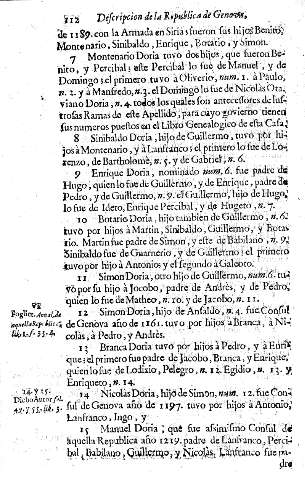 112 Descripcion de la Republica de Genova,
de 1189. con la Armada en Siria: fueron sus hijos Benito,
Montenario, Sinibaldo, Enrique, Botario, y Simon.
7 Montenario Doria tuvo dos hijos, que fueron Be-
nito, y Percibal: este Percibal lo fue de Manuel, y de
Domingo: el primero tuvo à Oliverio, num. 1. à Paulo,
n. 2. y à Manfredo, n. 3. el Domingo lo fue de Nicolàs Ota-
viano Doria, n. 4. todos los quales son antecessores de Ilus-
trosas Ramas de este Apellido, para cuyo govierno tienen
sus numeros puestos en el Libro Genealogico de esta Casa.
8 Sinibaldo Doria, hijo de Guillermo, tuvo por hi-
jos à Montenario, y à Lanfranco: el primero lo fue de Lo-
renzo, de Bartholomè, n. 5. y de Gabriel, n. 6.
9 Enrique Doria, nominado num. 6. fue padre de
Hugo, quien lo fue de Guillermo, y de Enrique, padre de
Pedro, y de Guillermo, n. 9. el Guillermo, hijo de Hugo,
lo fue de Idero, Enrique Percibal, y de Hugeto, n. 7.
10 Botario Doria, hijo tambien de Guillermo, n. 6.
tuvo por hijos à Martin, Sinibaldo, Guillermo, y Bota-
rio. Martin fue padre de Simon, y este de Babilano, n. 9.
Sinibaldo fue de Guarnerio, y de Guillermo: el primero
tuvo por hijo à Antonio, y el segundo à Galeoto.
11 Simon Doria, otro hijo de Guillermo, num. 6. tu-
vo por su hijo à Jacobo, padre de Andrès, y de Pedro,
quien lo fue de Matheo, n. 10. y de Jacobo, n. 11.
12 Simon Doria, hijo de Ansaldo, n. 4. fue Consul
de Genova año de 1161. tuvo por hijos à Branca, à Ni-
colàs, à Pedro, y Andrès.
13 Branca Doria tuvo por hijos à Pedro, y à Enri-
que: el primero fue padre de Jacobo, Branca, y Enrique,
quien lo fue de Lodisio, Pelegro, n. 12. Egidio, n. 13. y
Enriqueto, n. 14.
14 Nicolàs Doria, hijo de Simon, num. 12. fue Con-
sul de Genova año de 1197. tuvo por hijos à Antonio,
Lanfranco, Ingo, y
15 Manuel Doria: que fue assimismo Consul de
aquella Republica año 1219. padre de Lanfranco, Perci-
bal, Babilano, Guillermo, y Nicolàs. Lanfranco fue pa-
dre